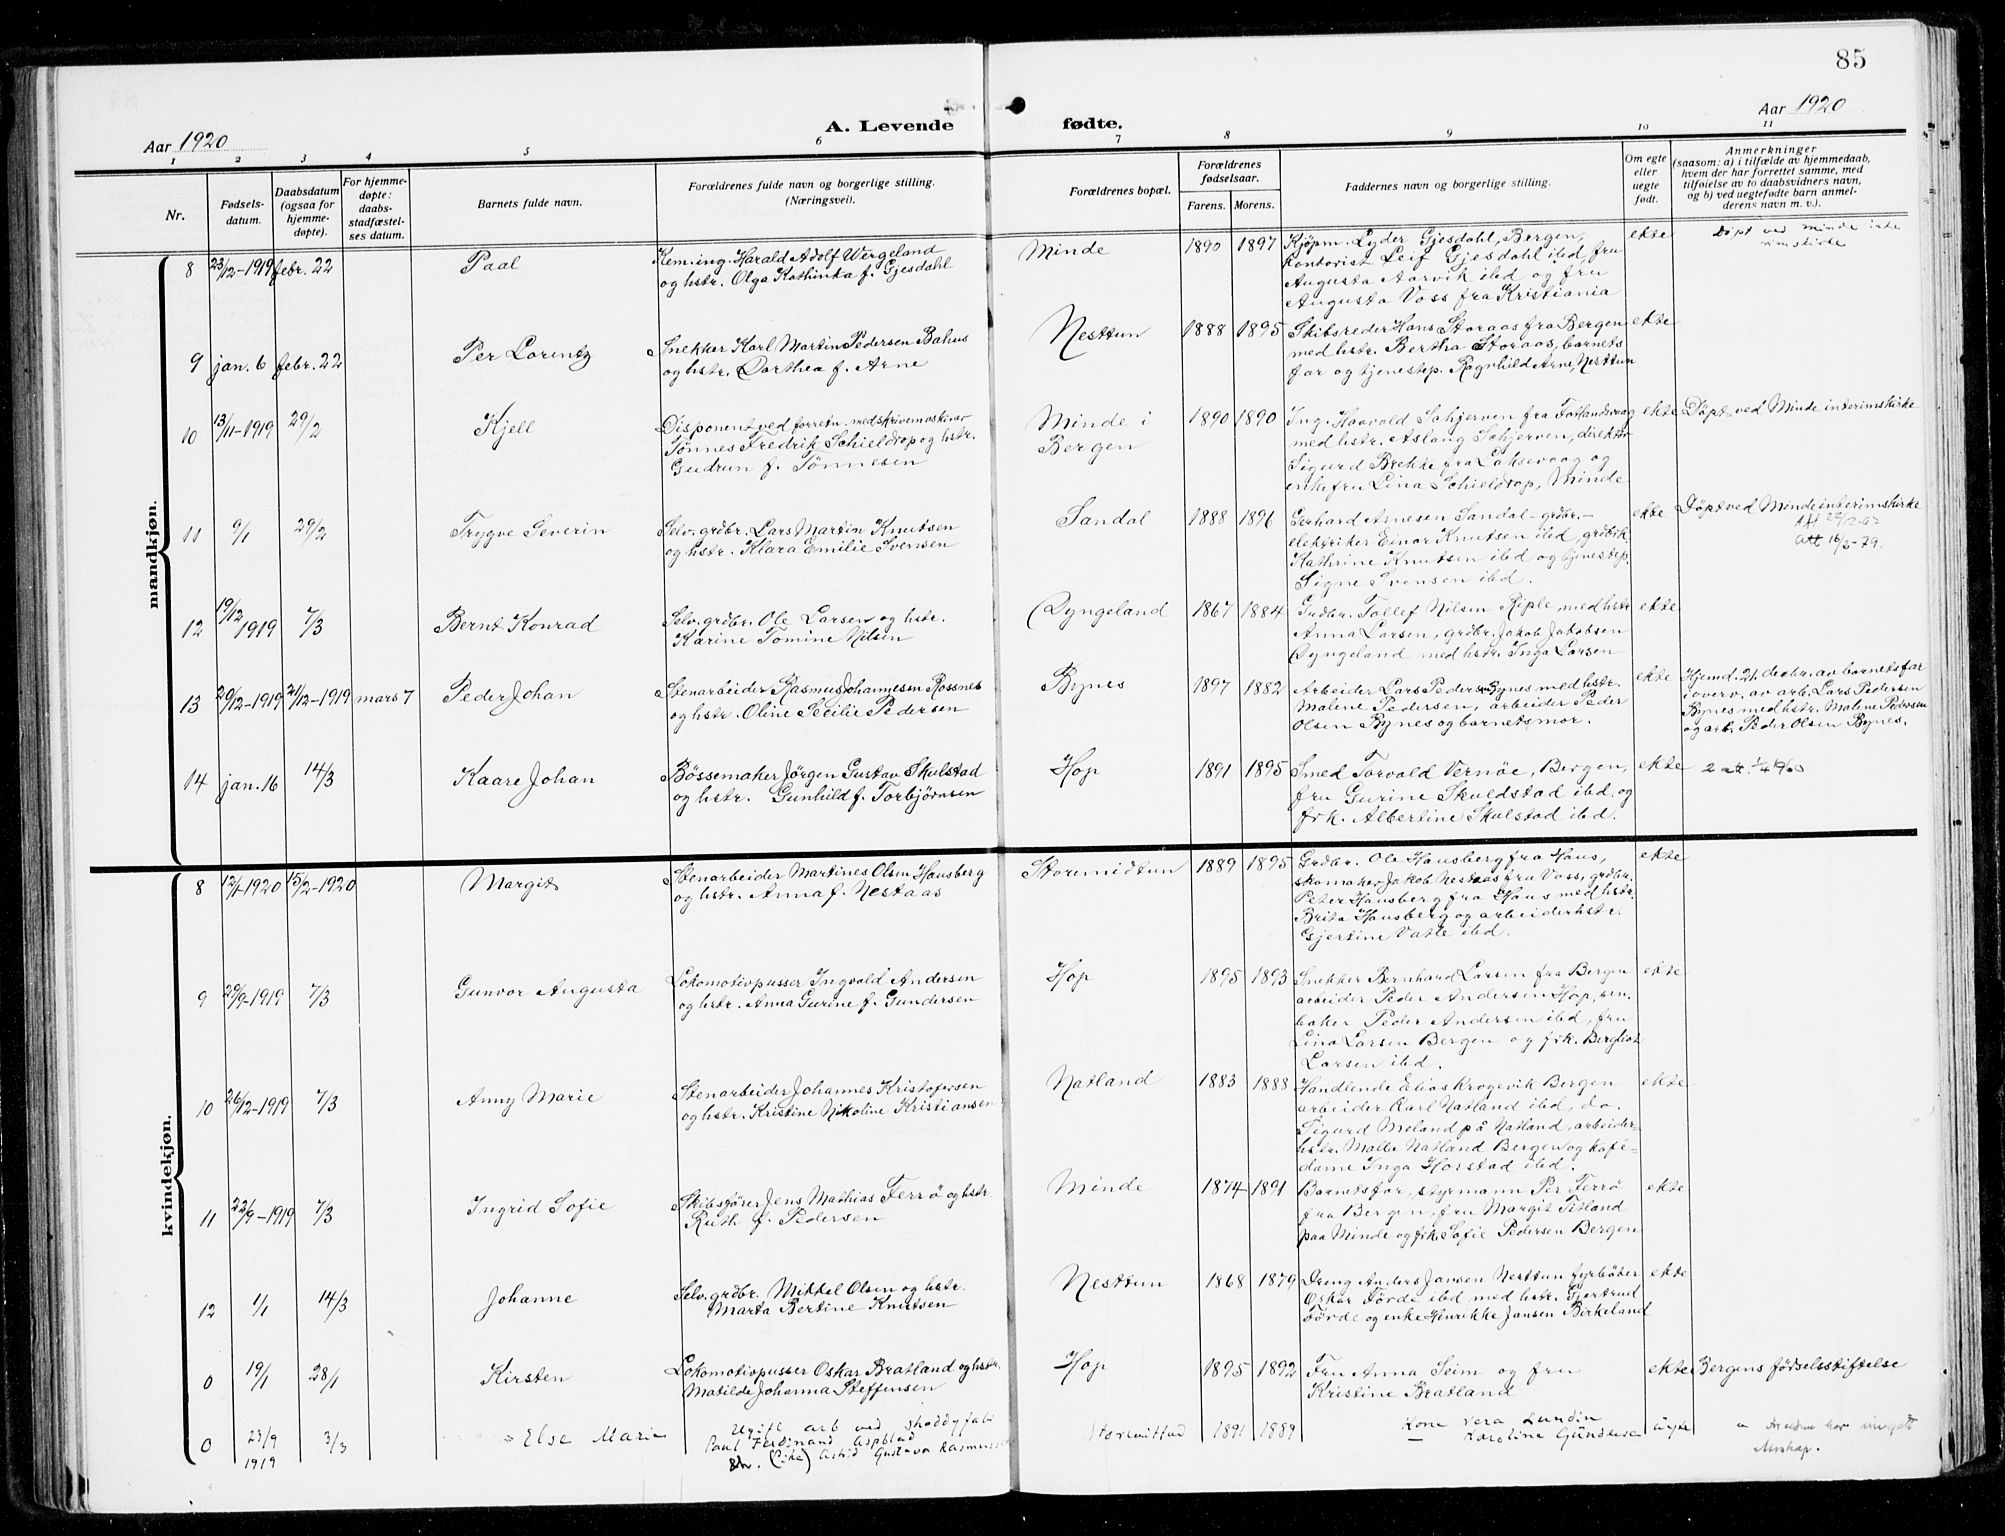 85
Aar 1920
A. Levende fødte.
Aar 1920
1 2 3 4 5 6 7 8 9 10 11
Nr.
Fødsels-
datum.
Daabsdatum
(ogsaa for
hjemme-
døpte).
For hjemme-
døpte:
daabs-
stadfæstel-
ses datum.
Barnets fulde navn.
Forældrenes fulde navn og borgerlige stilling.
(Næringsvei).
Forældrenes bopæl.
Forældrenes
fødselsaar.
Farens. Morens.
Faddernes navn og borgerlige stilling.
Om egte
eller
uegte
født.
Anmerkninger
(saasom: a) i tilfælde av hjemmedaab,
hvem der har forrettet samme, med
tilføielse av to daabsvidners navn,
og b) ved uegtefødte barn anmel-
derens navn m. v.).
mandkjøn.
8 23/12-1919 febr. 22 Paal
Kem.ing. Harald Adolf Wergeland
og hstr. Olga Kathinka f. Gjesdahl
Minde 1890 1897
Kjøpm. Lyder Gjesdahl, Bergen,
kontorist Leif Gjesdahl ibd, fru
Augusta Aarvik ibd og fru
Augusta Voss fra Kristiania
ekte
Døpt ved Minde inte
rimskirke
9 jan. 6 febr. 22 Per Lorentz
Snekker Karl Martin Pedersen Bahus
og hstr. Dorthea f. Arne
Nesttun 1888 1895
Skibsreder Hans Storaas fra Bergen
med hstr. Bertha Storaas, barnets
far og tjenestep. Ragnhild Arne, Nesttun
ekte
10 13/11-1919 29/2 Kjell
Disponent ved forretn. med skrivemaskiner
Tönnes Fredrik Schieldrop og hstr.
Gudrun f. Tönnesen
Minde i
Bergen
1890 1890
Ing. Haavald Schjerven fra Fotlandsvaag
med hstr. Aslaug Schjerven, direktør
Sigurd Brekke fra Laksevaag og
enkefru Lina Schieldrop, Minde
ekte
Døpt ved Minde interimskirke
11 9/1 29/2 Trygve Severin
Selv. grdbr. Lars Martin Knutsen
og hstr. Klara Emilie Svensen
Sandal 1888 1896
Gerhard Arnesen Sandal - grdbr. -
elektriker Einar Knutsen ibd, grdbrk.
Kathrine Knutsen ibd og tjenestep.
Signe Svensen ibd.
ekte
Døpt ved Minde interimskirke
Att 16/3-79.
12 19/12 1919 7/3 Bernt Konrad
Selv. grdbr. Ole Larsen og hstr.
Karine Tomine Nilsen
Dyngeland 1867 1884
Grdbr. Tollef Nilsen Riple med hstr
Anna Larsen, grdbr. Jakob Jakobsen
Dyngeland med hstr. Inga Larsen
ekte
13 20/12-1919 21/12-1919 mars 7 Peder Johan
Stenarbeider Rasmus Johannesen Rossnes
og hstr. Oline Secilie Pedersen
Bynes 1897 1882
Arbeider Lars Pedersen Bynes med hstr.
Malene Pedersen, arbeider Peder
Olsen Bynes og barnets mor.
ekte
Hjemd. 21. decbr. av barnets far
i overv. av arb. Lars Pedersen
Bynes med hstr. Malene Pedersen
og arb. Peder Olsen Bynes.
14 jan. 16 14/3 Kaare Johan
Bössemaker Jörgen Gustav Skulstad
og hstr. Gunhild f. Torbjörnsen
Hop 1891 1895
Smed Torvald Vernöe, Bergen,
fru Gurine Skuldstad ibd. og
frk. Albertine Skulstad ibd.
ekte
kvindekjøn.
8 12/1-1920 15/2-1920 Margit
Stenarbeider Martines Olsen Hausberg
og hstr. Anna f. Nestaas
Storemidtun 1889 1895
Grdbr. Ole Hausberg fra Haus,
skomaker Jakob Nestaas fra Voss, grdbr.
Peter Hausberg fra Haus med hstr.
Brita Hausberg og arbeiderhstr.
Gjertine Vatle ibd.
ekte
9 29/9-1919 7/3 Gunvor Augusta
Lokomotivpusser Ingvald Andersen
og hstr. Anna Gurine f. Gundersen
Hop 1895 1893
Snekker Bernhard Larsen fra Bergen
arbeider Peder Andersen Hop, sen.
baker Peder Andersen ibd, fru
Lina Larsen Bergen og frk. Bergliot
Larsen ibd.
ekte
10 26/12-1919 7/3 Anny Marie
Stenarbeider Johannes Kristofersen
og hstr. Kristine Nikoline Kristiansen
Natland 1883 1888
Handlende Elias Krogevik Bergen
arbeider Karl Natland ibd, do.
Sigurd Meland på Natland, arbeider-
hstr. Malla Natland Bergen og kafé-
dame Inga Horstad ibd.
ekte
11 22/9-1919 7/3 Ingrid Sofie
Skibsförer Jens Mathias Ferrö og hstr.
Ruth f. Pedersen
Minde 1874 1891
Barnets far, styrmann Per Ferrö
fra Bergen, fru Margit Titland
paa Minde og frk. Sofie Pedersen Bergen
ekte
12 1/1 14/3 Johanne
Selv. grdbr. Mikkel Olsen og hstr.
Marta Bertine Knutsen
Nesttun 1868 1879
Dreng Anders Jansen Nesttun fyrböter
Oskar Förde ibd med hstr. Gjertrud
Förde og enke Henrikke Jansen Birkeland
ekte
0 19/1 28/1 Kirsten
Lokomotivpusser Oskar Bratland og hstr.
Matilde Johanna Steffensen
Hop 1895 1892
Fru Anna Seim og fru
Kristine Bratland
ekte
Bergens födselsstiftelse
0 23/9 1919 3/3 Else Marie
Ugift arb ved shoddyfabr
Paul Ferdinand Aspblad
(Pike) Astrid Gustava Rasmussen
Storemittud 1891 1889
Kone Vera Lundin
Karoline Gundersen
uegte